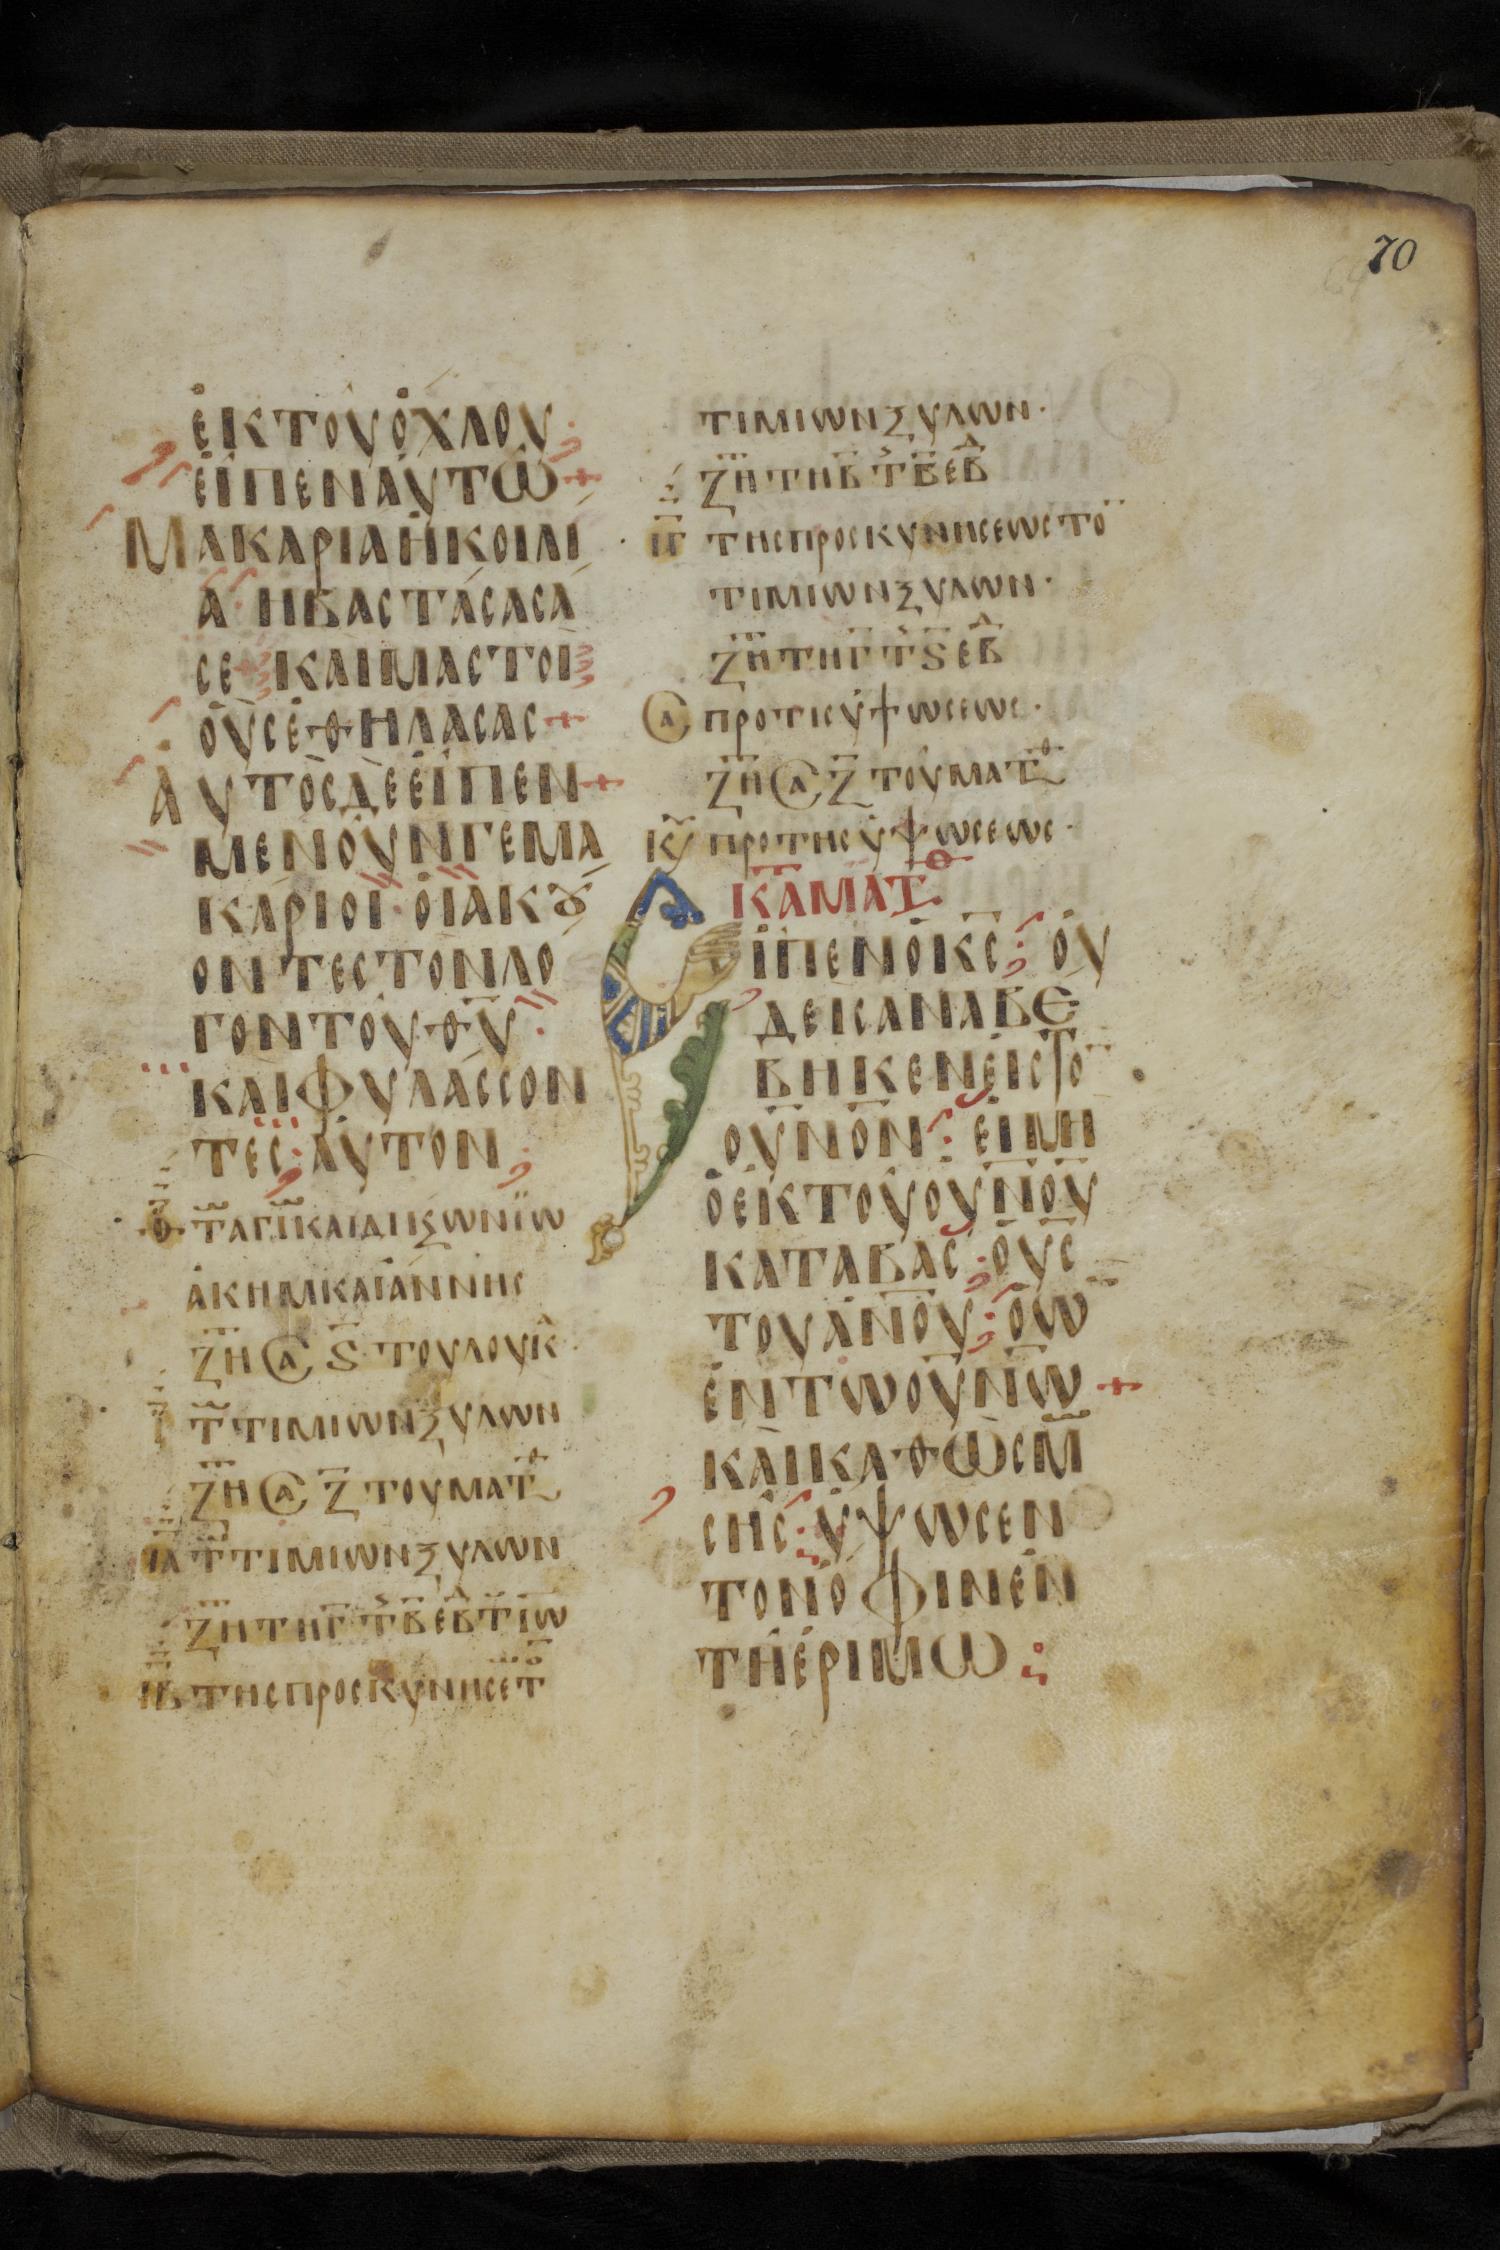 70
ἐκτοῦὄχλου·
εἶπεναὐτῶ+
Μακαρίαἡκοιλί
α·ἡβαστάσασά
σε+καιμαστοὶ
οὓςἐθήλασας+
Αὐτὸςδὲεἶπεν+
μενοῦνγεμα
κάριοι·οἱἀκȣ́
οντεςτονλό
γοντοῦθ̅υ̅·
καὶφυλάσσον
τες·ἀυτον
θ τ̅αγι̅καιδικωνϊω
ἀκημκαιἄννης
ζ̅η̅ⲥⲁ ϛ̅ τουλουκ
ι τ̅τιμιωνξυλων
ζ̅η̅ⲥⲁ ζ̅ τουματθ
ια τ̅τιμιωνξυλων
ζ̅η̅τηγ̅ τ̅β̅εβδτι̅ω
ιβ τηςπροσκυνησετ
τιμιωνξυλων·
ζ̅η̅τηβ̅ τ̅β̅εβδ
ιγ τηςπροσκυνησεωςτο
τιμιωνξυλων·
ζ̅η̅τηγ̅ τ̅ϛ̅εβδ
ⲥⲁ προτιςὑψωσεως·
ζ̅η̅ⲥⲁ ζ̅ τουματθ
κυ προτηςὑψωσεως·
κ̅α̅ματθ
εἶπενὁκ̅ς̅· οὐ
δειςαναβε
βηκενεἰςτο
ουν̅ον̅· εἰμη
ὁἐκτοῦουν̅ου̅
καταβας·ουσ
τουαν̅ου̅·ὁω
ἐντωουν̅ω̅+
κὰικαθὼςμ
σης·ὕψωσεν
τονὀφινἐν
τῆἐριμω